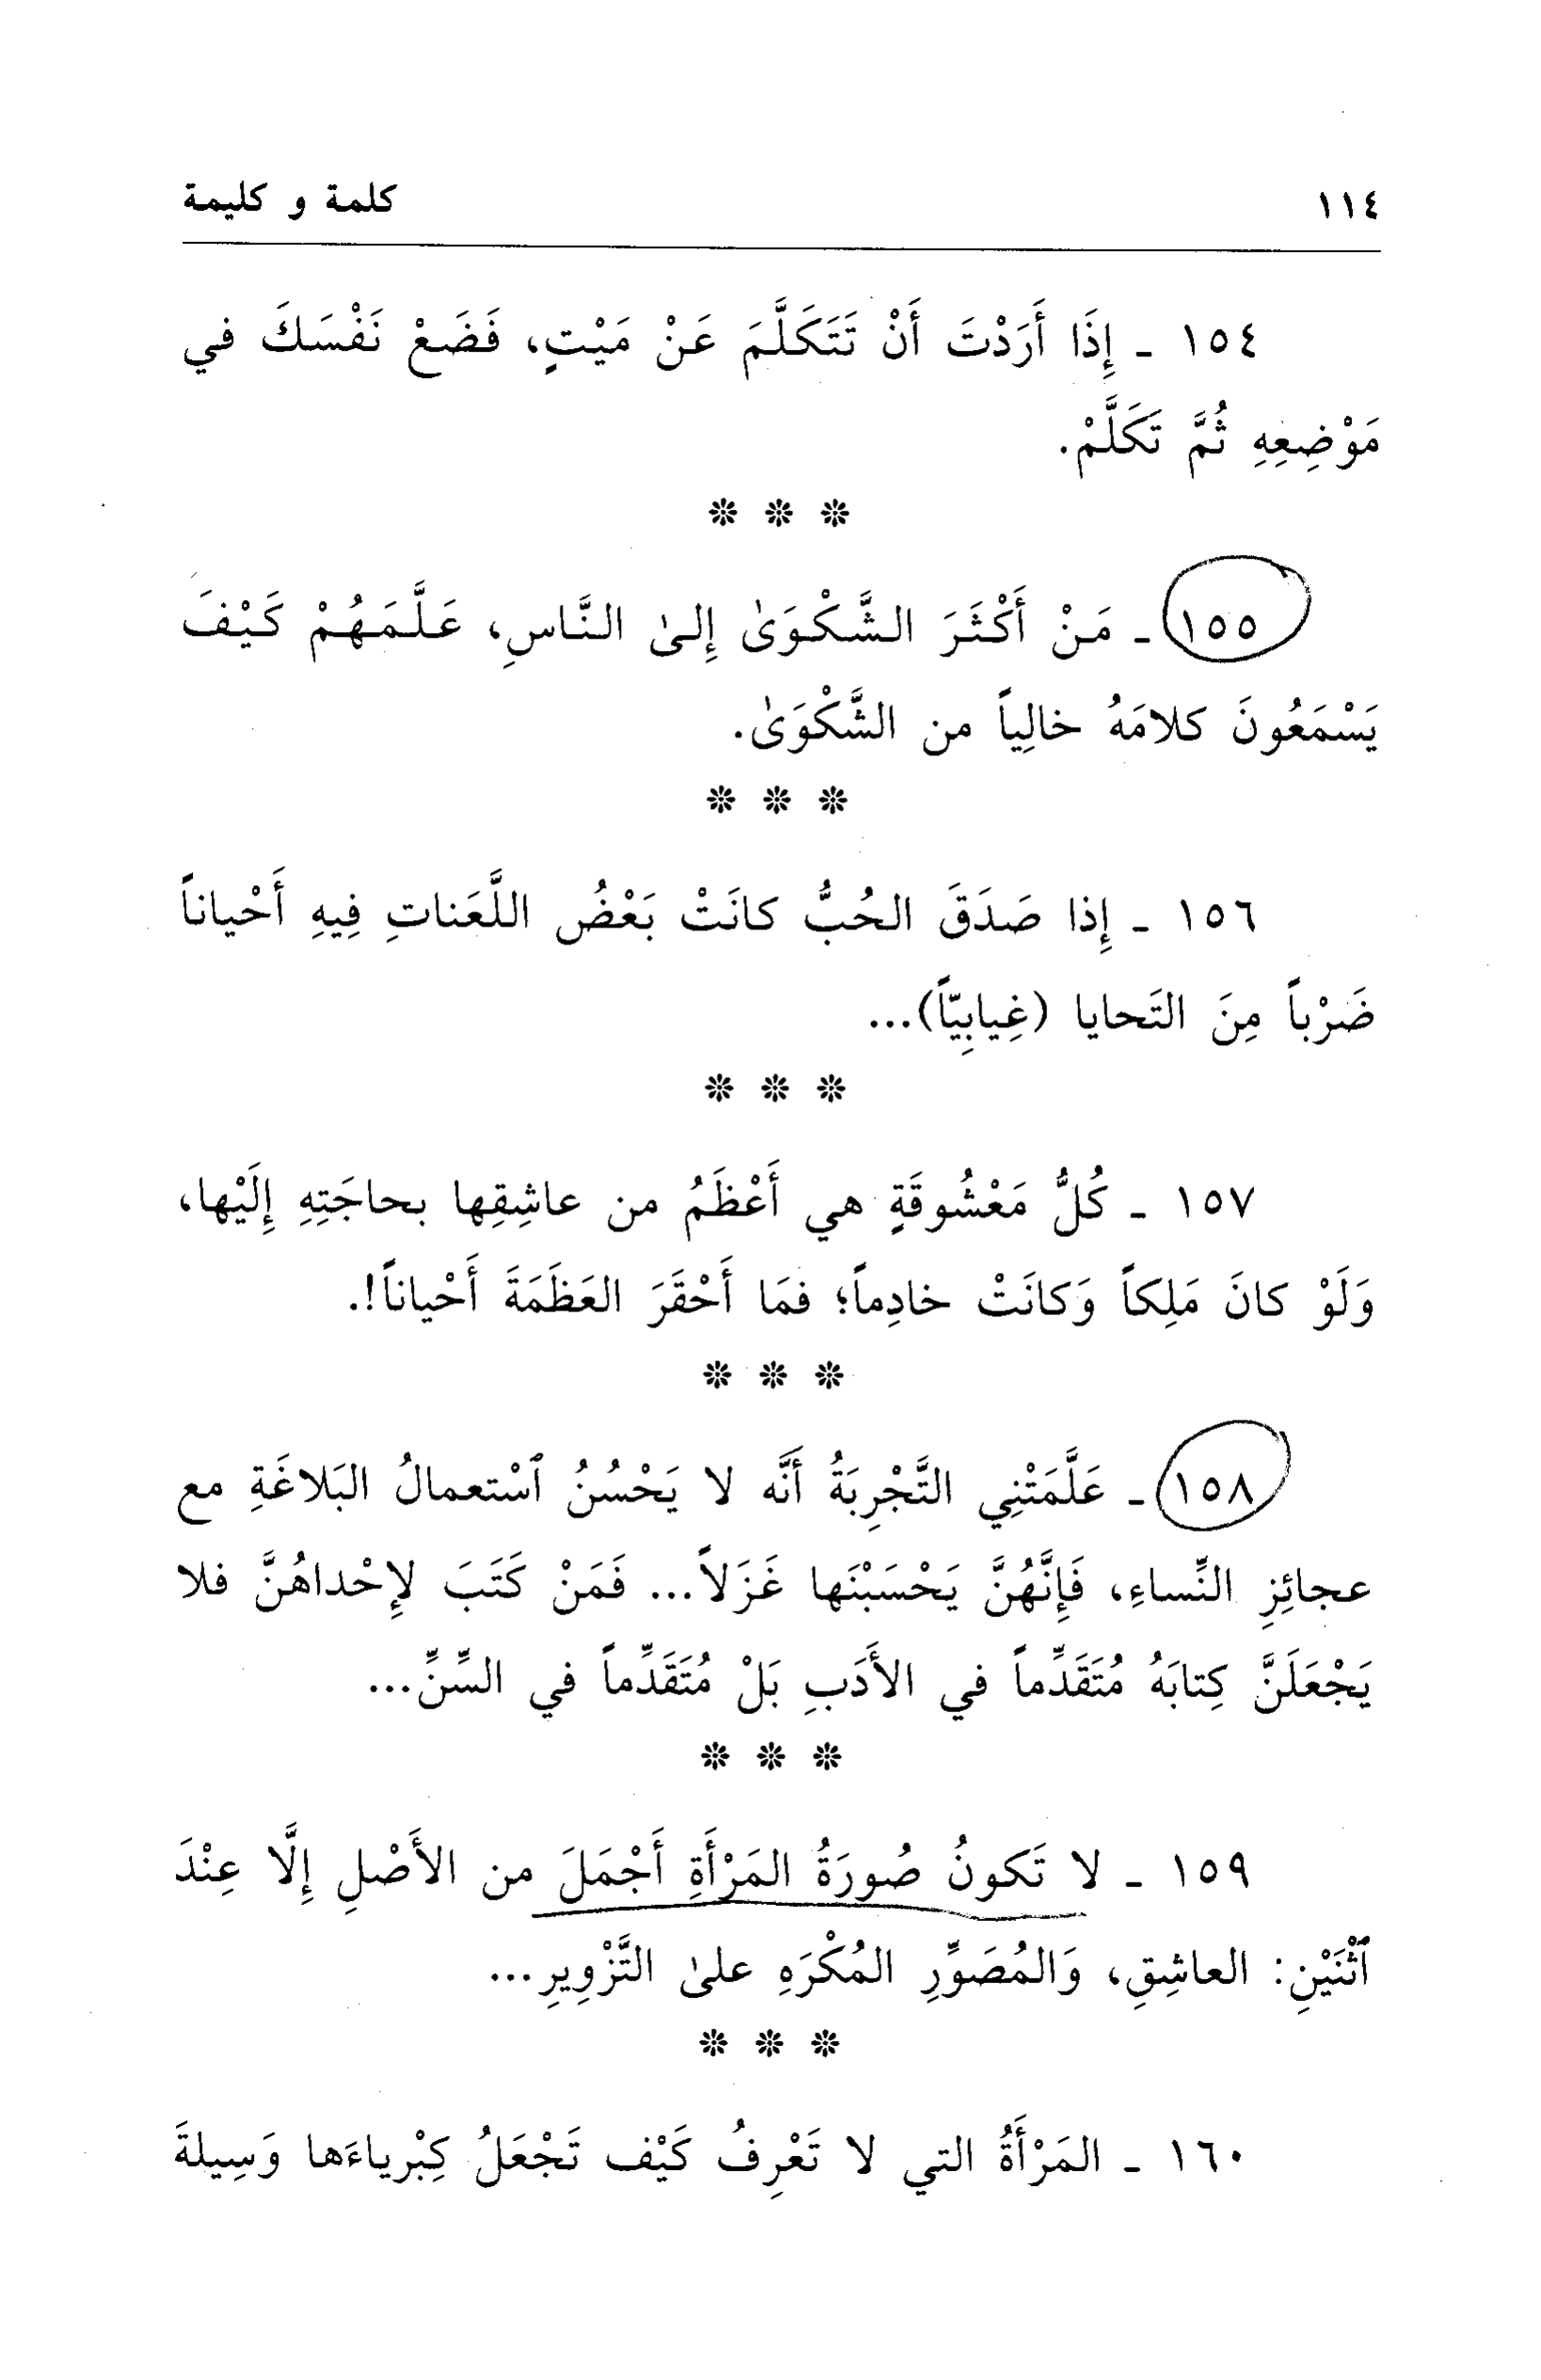 ١١٤
كلمة و كليمة
١٥٤ ـ إِذَا أَرَدْتَ أَنْ تَتَكَلَّمَ عَنْ مَيْتٍ، فَضَعْ نَفْسَكَ في
مَوْضِعِهِ ثُمَّ تَكَلَّمْ.
※ ※ ※
١٥٥ ـ مَنْ أَكْثَرَ الشَّكْوَىٰ إِلىٰ النَّاسِ، عَلَّمَهُمْ كَيْفَ
يَسْمَعُونَ كلامَهُ خالِياً من الشَّكْوَىٰ.
※ ※ ※
١٥٦ ـ إِذا صَدَقَ الحُبُّ كانَتْ بَعْضُ اللَّعَناتِ فِيهِ أَحْياناً
ضَرْباً مِنَ التَحايا (غِيابِيّاً)...
※ ※ ※
١٥٧ ـ كُلُّ مَعْشُوقَةٍ هي أَعْظَمُ من عاشِقِها بحاجَتِهِ إِلَيْها،
وَلَوْ كانَ مَلِكاً وَكانَتْ خادِماً؛ فمَا أَحْقَرَ العَظَمَةَ أَحْياناً!.
※ ※ ※
١٥٨ ـ عَلَّمَتْنِي التَّجْرِبَةُ أَنَّه لا يَحْسُنُ ٱسْتعمالُ البَلاغَةِ مع
عجائِزِ النِّساءِ، فَإِنَّهُنَّ يَحْسَبْنَها غَزَلاً... فَمَنْ كَتَبَ لإِحْداهُنَّ فلا
يَجْعَلَنَّ كِتابَهُ مُتَقَدِّماً في الأَدَبِ بَلْ مُتَقَدِّماً في السِّنِّ...
※ ※ ※
١٥٩ ـ لا تَكونُ صُورَةُ المَرْأَةِ أَجْمَلَ من الأَصْلِ إِلَّا عِنْدَ
ٱثْنَيْنِ: العاشِقِ، وَالمُصَوِّرِ المُكْرَهِ علىٰ التَّزْوِيرِ...
※ ※ ※
١٦٠ ـ المَرْأَةُ التي لا تَعْرِفُ كَيْف تَجْعَلُ كِبْرياءَها وَسِيلةَ